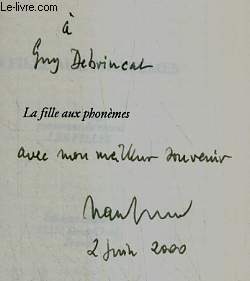 © Le-Livre.com
à
Guy Debrincat
La fille aux phonèmes
avec mon meilleur souvenir
2 Juin 2000